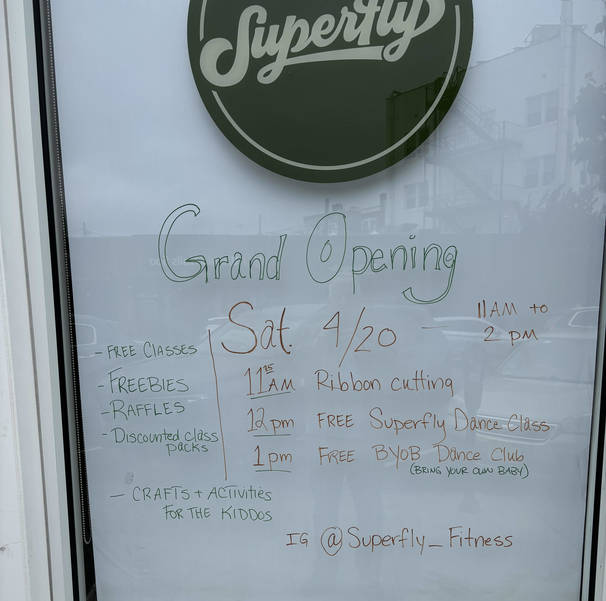 Superfly
Grand Opening
Sat. 4/20 - 11AM to
2 pm
- FREE CLASSES
- FREEBIES
- RAFFLES
- Discounted class
packs
- CRAFTS + ACTIVITIES
FOR THE KIDDOS
11:15 AM Ribbon cutting
12 pm FREE Superfly Dance Class
1 pm FREE BYOB Dance Club
(BRING YOUR OWN BABY)
IG @Superfly_Fitness